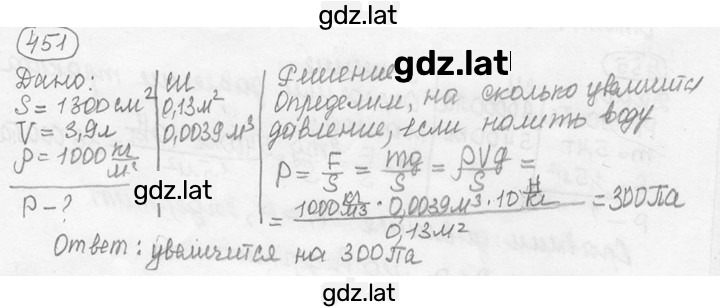 gdz.lat
451
Дано:
S = 1300 см²
V = 3,9 л
ρ = 1000 кг/м³
P - ?
СИ
0,13 м²
0,0039 м³
gdz.lat
Решение
gdz.lat
Определим, на сколько увеличится
давление, если налить воду
P = F/S = mg/S = ρVg/S =
= 1000 кг/м3 · 0,0039 м³ · 10 Н/кг / 0,13 м² = 300 Па
Ответ: увеличится на 300 Па
gdz.lat